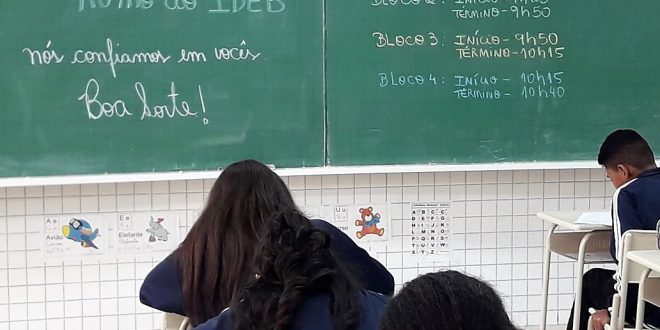 Rumo ao IDEB
nós confiamos em vocês
Boa Sorte!
BLOCO 2:
TÉRMINO - 9h50
BLOCO 3: INÍCIO - 9h50
TÉRMINO - 10h15
BLOCO 4: INÍCIO - 10h15
TÉRMINO - 10h40
A a
Avião
E e
Elefante
U u
A B C Ç